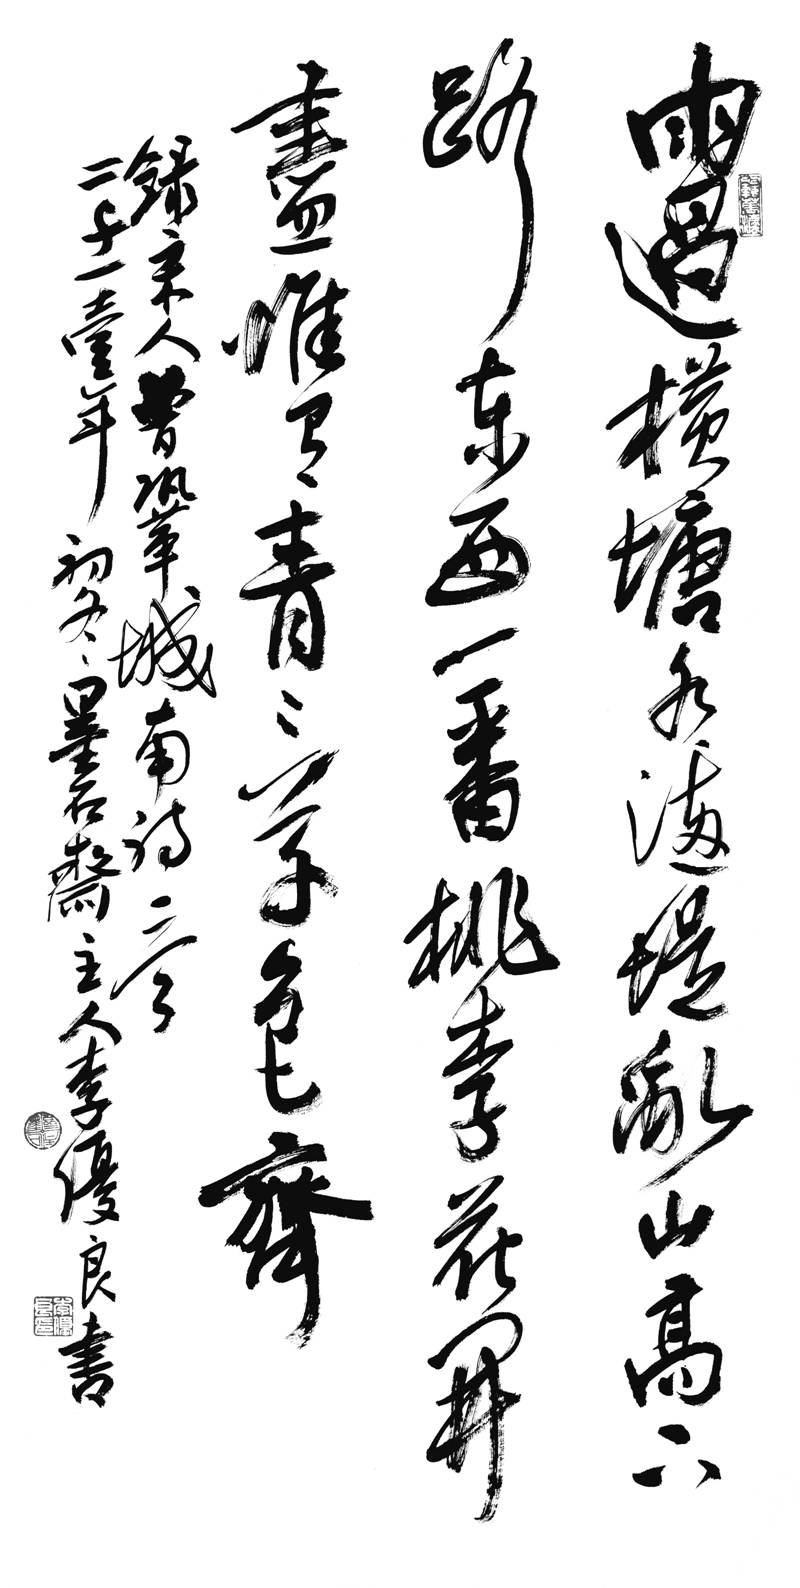 雨過橫塘水滿堤亂山高下
路東西一番桃李花開
盡惟有青〻草色齊
錄宋人曾鞏城南詩
二千一壹年初冬墨石齋主人李優良書